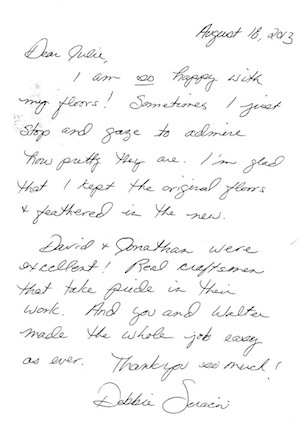 August 18, 2013
Dear Julie,
I am so happy with
my floors! Sometimes I just
stop and gaze to admire
how pretty they are. I'm glad
that I kept the original floors
& feathered in the new.
David & Jonathan were
excellent! Real craftsmen
that take pride in their
work. And you and Walter
made the whole job easy
as ever. Thank you so much!
Debbie